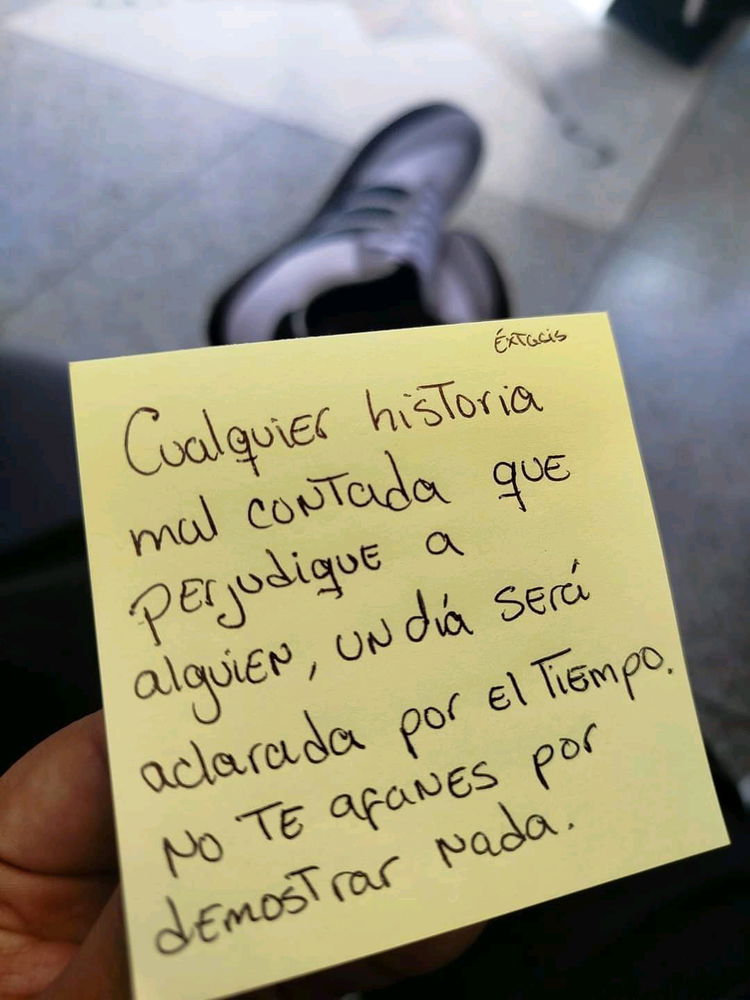 Éxtacis
Cualquier historia
mal contada que
perjudique a
alguien, un día será
aclarada por el tiempo.
No te afanes por
demostrar nada.